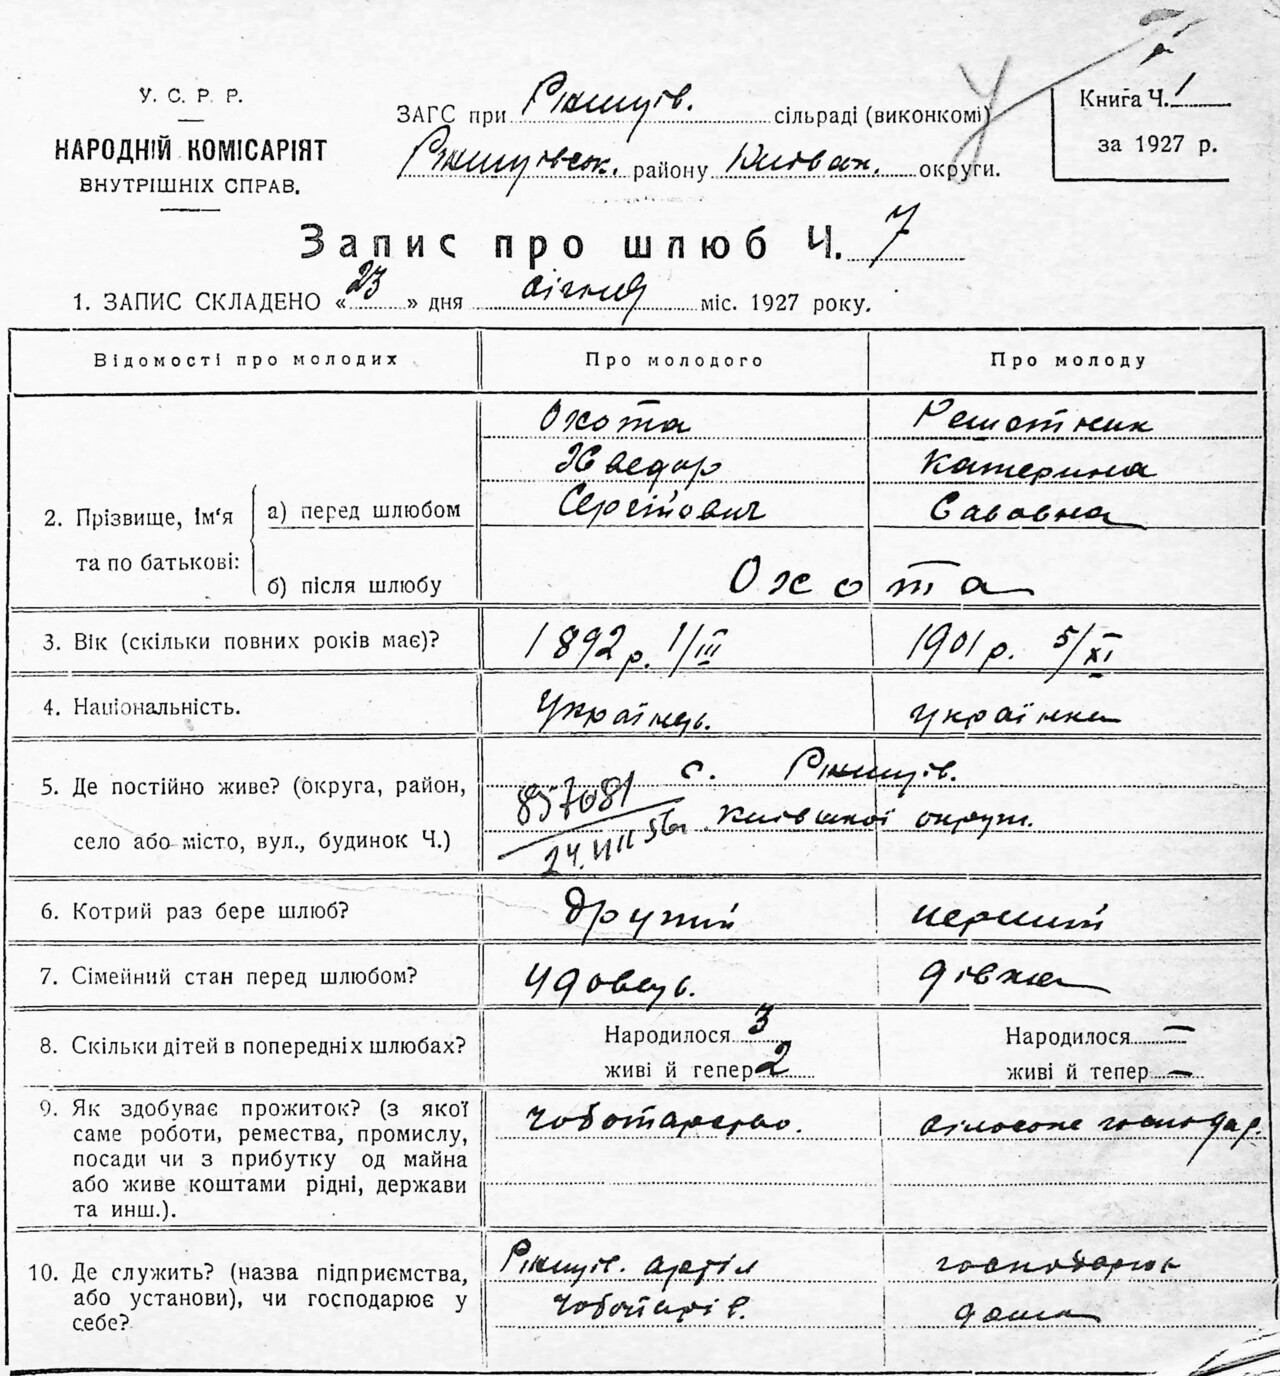 У. С. Р. Р.
НАРОДНІЙ КОМІСАРІЯТ
ВНУТРІШНІХ СПРАВ.
ЗАГС при Ржищів. сільраді (виконкомі)
Ржищівськ. району Київськ. округи.
Книга Ч. 1
за 1927 р.
Запис про шлюб Ч. 7
1. ЗАПИС СКЛАДЕНО « 23 » дня січня міс. 1927 року.
Відомості про молодих Про молодого Про молоду
2. Прізвище, Ім'я та по батькові:
а) перед шлюбом
Охота Решотник
Хведор Катерина
Сергійович Савовна
б) після шлюбу Охота
3. Вік (скільки повних років має)? 1892 р. 1/III 1901 р. 5/XI
4. Національність. Українець. українка
5. Де постійно живе? (округа, район, с. Ржищів.
село або місто, вул., будинок Ч.) Київської округи.
857081
24.VII 56г
6. Котрий раз бере шлюб? другий перший
7. Сімейний стан перед шлюбом? удовець. дівка
8. Скільки дітей в попередніх шлюбах? Народилося 3 Народилося –
живі й тепер 2 живі й тепер –
9. Як здобуває прожиток? (з якої чоботарство. сільське господар.
саме роботи, ремества, промислу,
посади чи з прибутку од майна
або живе коштами рідні, держави
та инш.).
10. Де служить? (назва підприємства, Ржищів. артіл господарює
або установи), чи господарює у чоботарів. дома
себе?